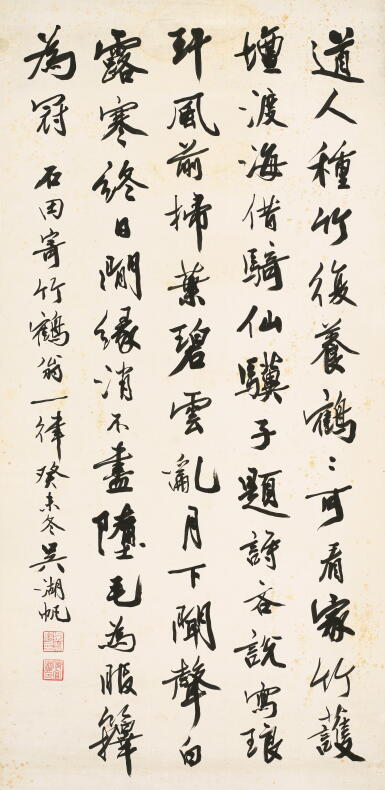 道人種竹復養鶴〻可看家竹護
壇渡海借騎仙驥子題詩說寫琅
玕風前掃葉碧雲亂月下聞聲白
露寒終日閒緣消不盡墮毛為服籜
為冠 石田寄竹鶴翁一律 癸未冬 吳湖帆